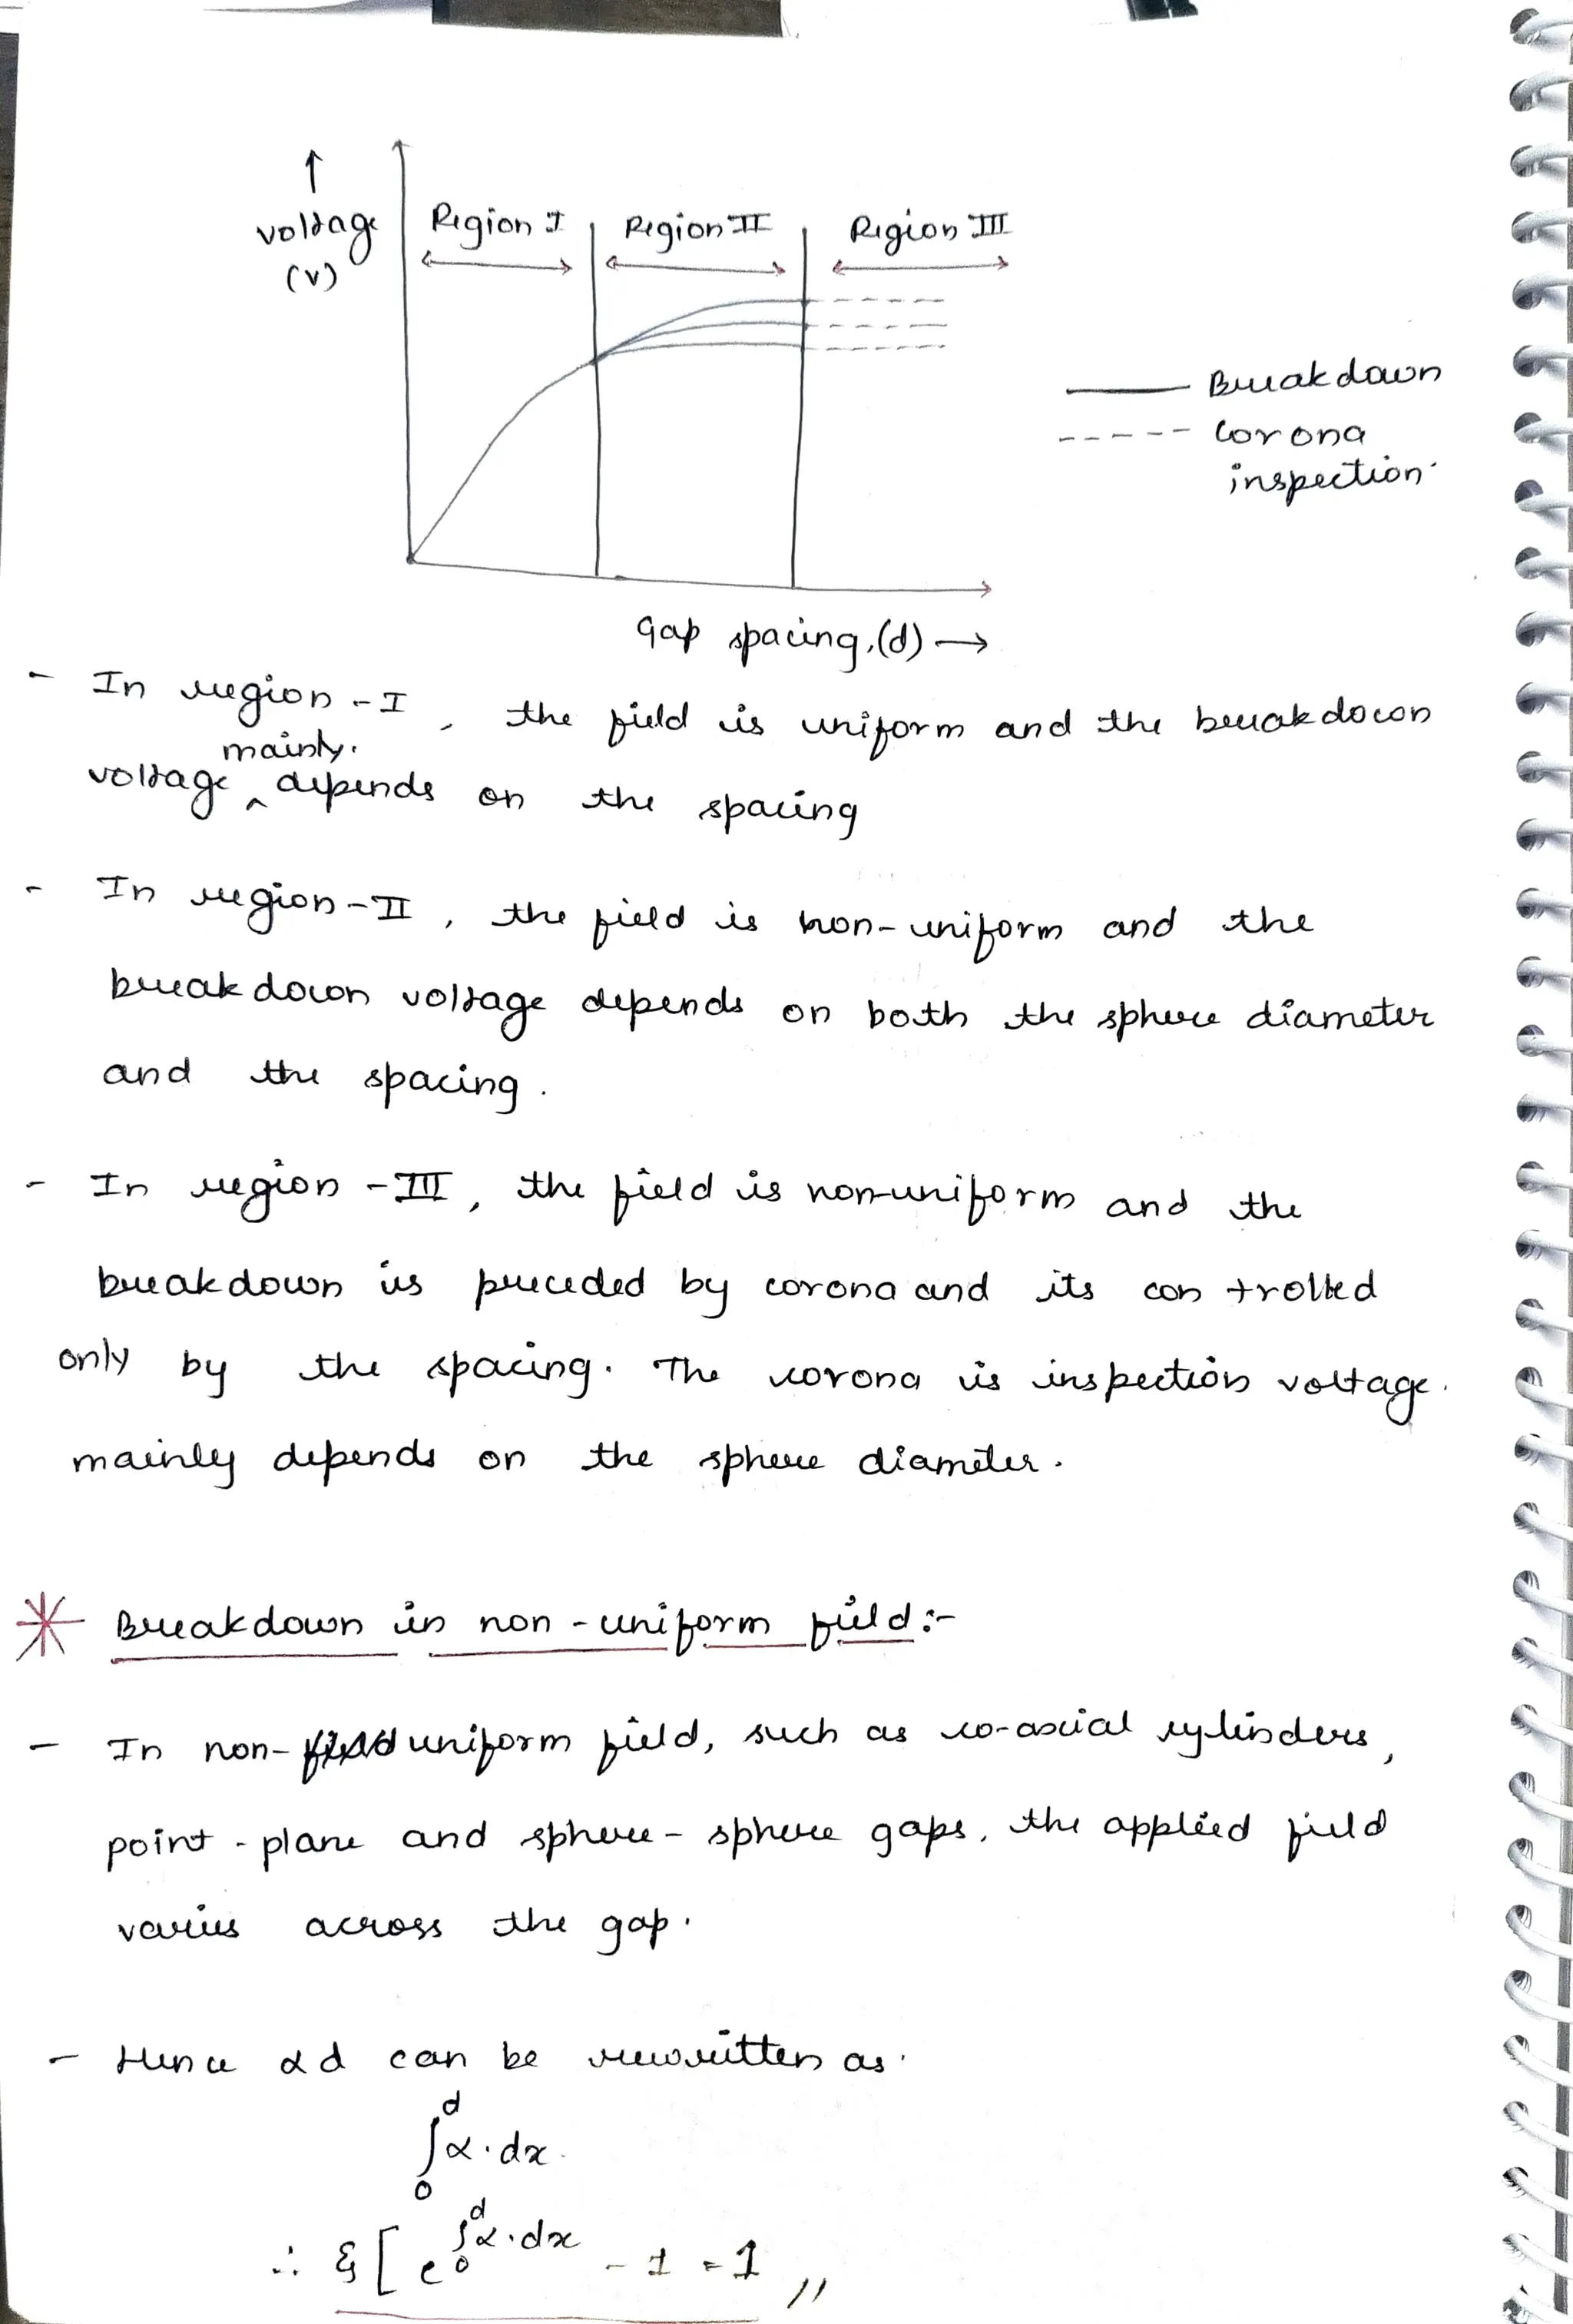 ↑
voltage
(v)
Region I
Region II
Region III
Breakdown
Corona
inspection.
Gap spacing,(d) →
- In region - I , the field is uniform and the breakdown
mainly.
voltage ^ depends on the spacing
- In region - II , the field is non-uniform and the
breakdown voltage depends on both the sphere diameter
and the spacing.
- In region - III, the field is non-uniform and the
breakdown is preceded by corona and its controlled
only by the spacing. The corona is inspection voltage.
mainly depends on the sphere diameter.
* Breakdown in non - uniform field :-
- In non- field uniform field, such as co-axial cylinders,
point - plane and sphere - sphere gaps, the applied field
varies across the gap.
- Hence αd can be rewritten as.
∫₀ᵈ α.dx.
∴ ξ [ e^∫₀ᵈ α.dx - 1 = 1 ,,